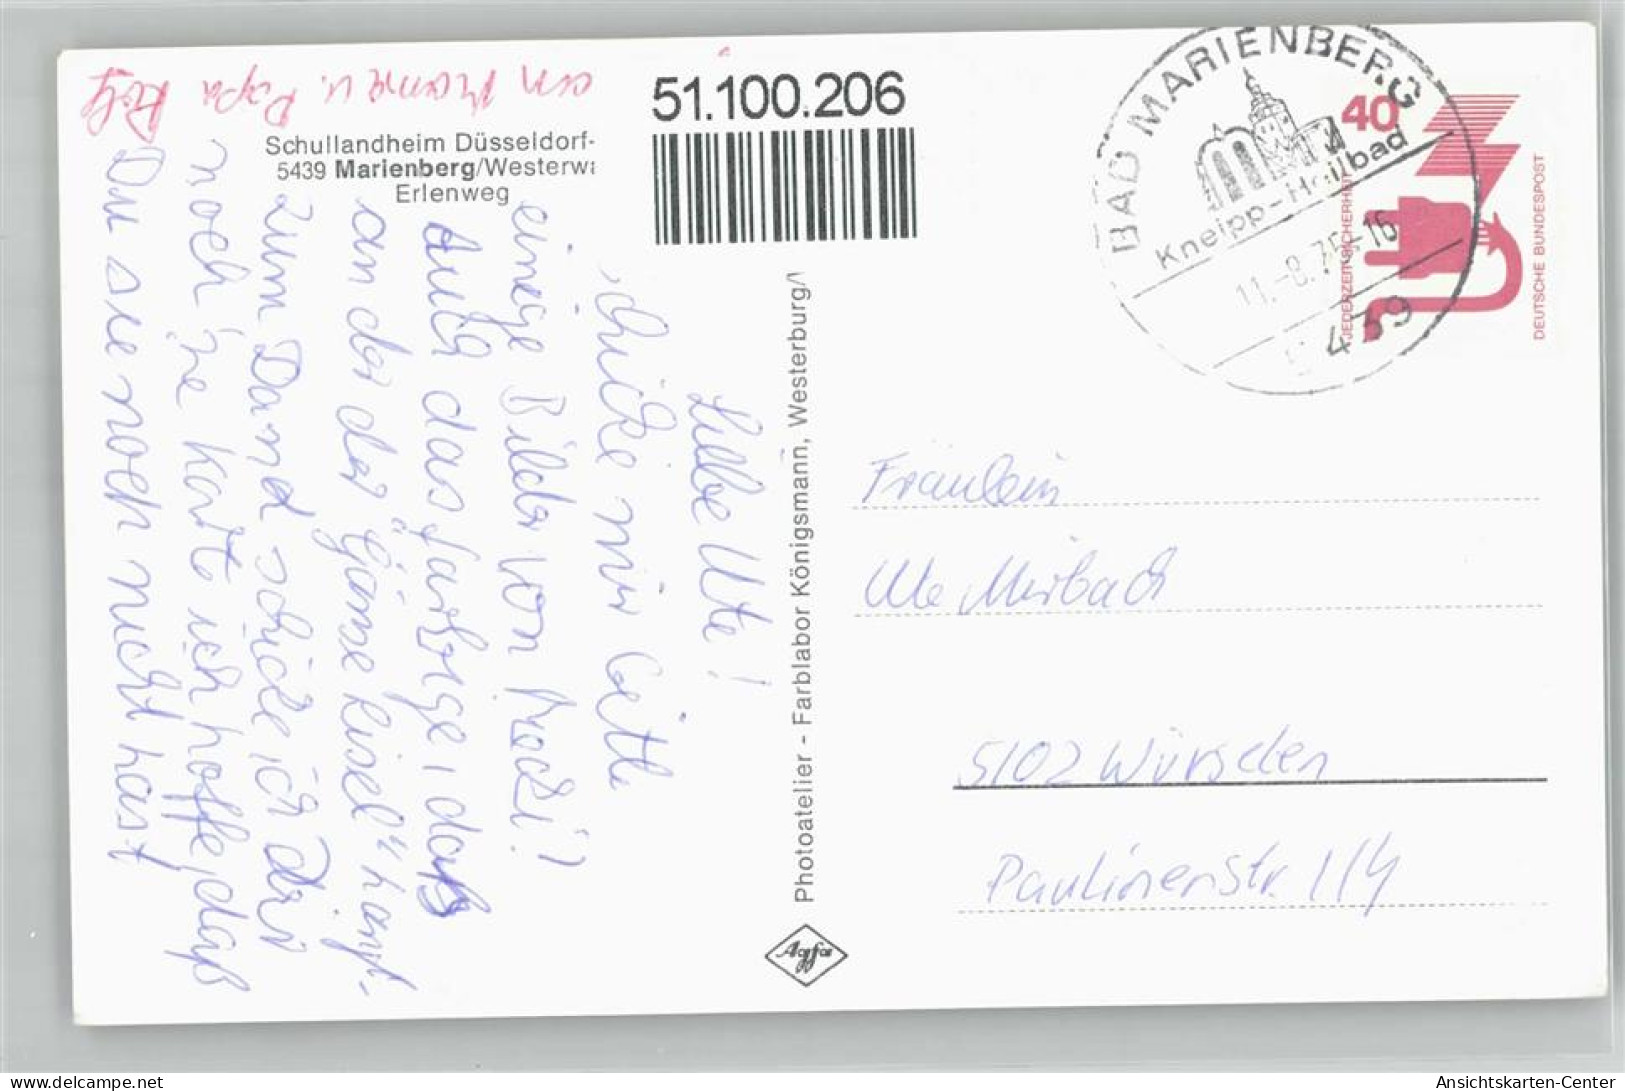 Schullandheim Düsseldorf-
5439 Marienberg/Westerwa
Erlenweg
51.100.206
BAD MARIENBERG
Kneipp-Heilbad
11.-8.75-16
439
40
JEDERZEIT SICHERHEIT
DEUTSCHE BUNDESPOST
Liebe Ute!
schicke mir bitte
einige Bilder von
Auch das farbige, daß
an der der "Gänseliesel" häng-
zum Dand schicke ich Dir
noch 'ne Karte ich hoffe, daß
Du sie noch nicht hast
an Mama u. Papa
Photoatelier - Farblabor Königsmann, Westerburg/
Agfa
Fräulein
Ute Mirbach
5102 Würselen
Paulinenstr. 114
Ansichtskarten-Center